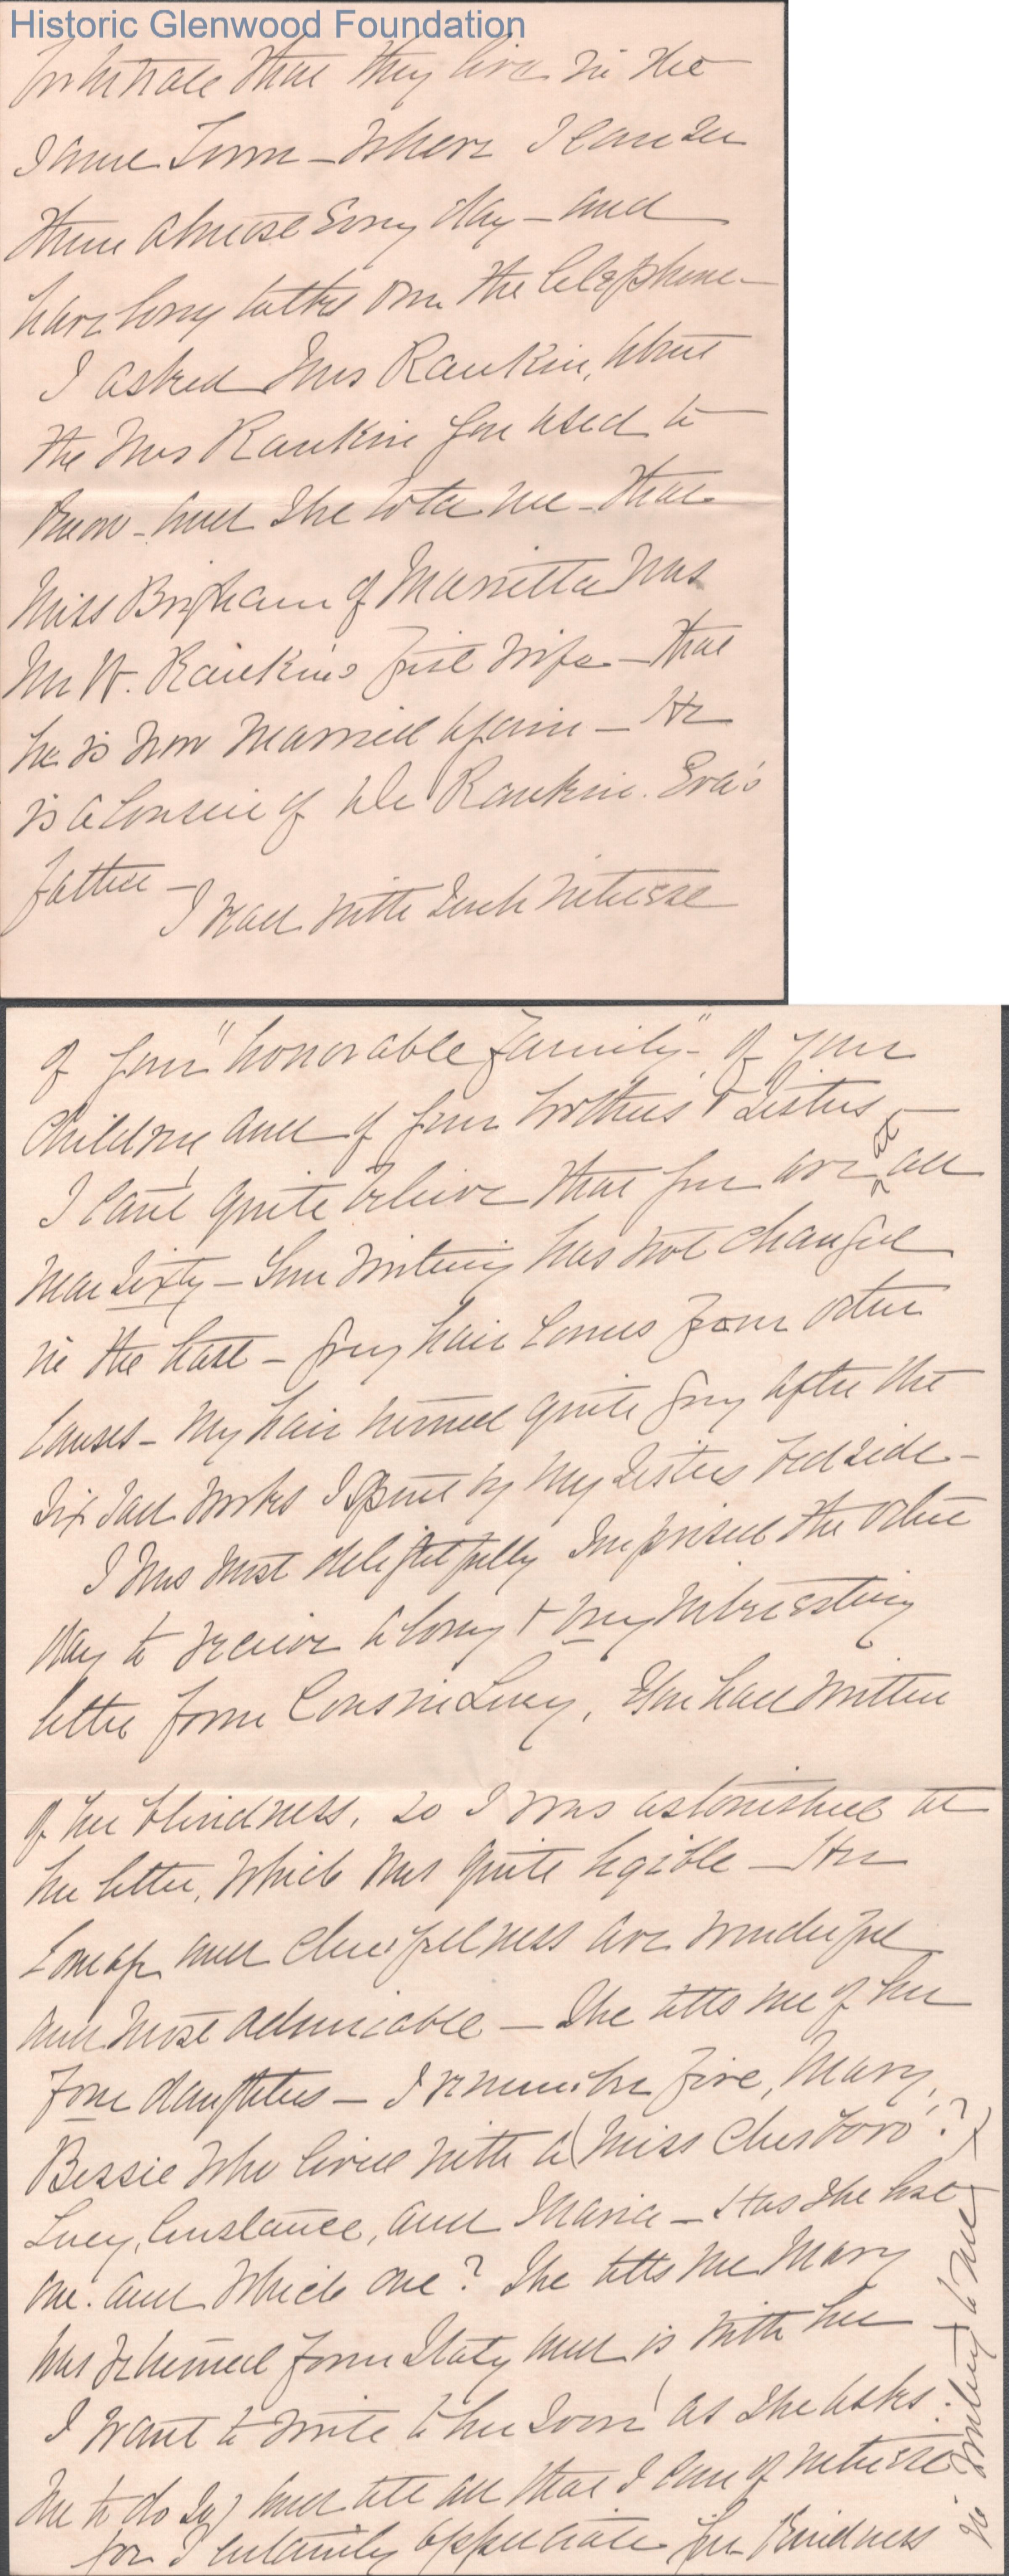 Historic Glenwood Foundation
fortunate that they live in the
same Town - where I can see
them almost Every day - and
have long talks over the telephone -
I asked Mrs Rankin, about
the Mrs Rankin you used to
know - and She told me - that
Miss Brigham of Marietta was
Mr W. Rankin's first wife - that
he is now married again - He
is a Cousin of Wm Rankin. Eva's
father -
I read with such interest
of your "honorable family" - of your
Children and of your brothers & sisters -
I can't quite believe that you are at all
near sixty - Your writing has not changed
in the least - grey hair comes from other
causes - My hair turned quite grey after the
six sad weeks I spent by my sisters bedside -
I was most delightfully surprised the other
day to receive a long & very interesting
letter from Cousin Lucy, You had written
of her blindness, so I was astonished at
her letter, which was quite legible - Her
courage and cheerfulness are wonderful
and most admirable - She tells me of her
four daughters - I remember five, Mary,
Bessie who lived with a (Miss Chesboro'?)
Lucy, Constance, and Maria - Has she lost
one. and which one? She tells me Mary
has returned from Italy and is with her
I want to write to her soon as she asks
me to do so, and tell all that I can of interest
for I certainly appreciate her kindness
in writing to me